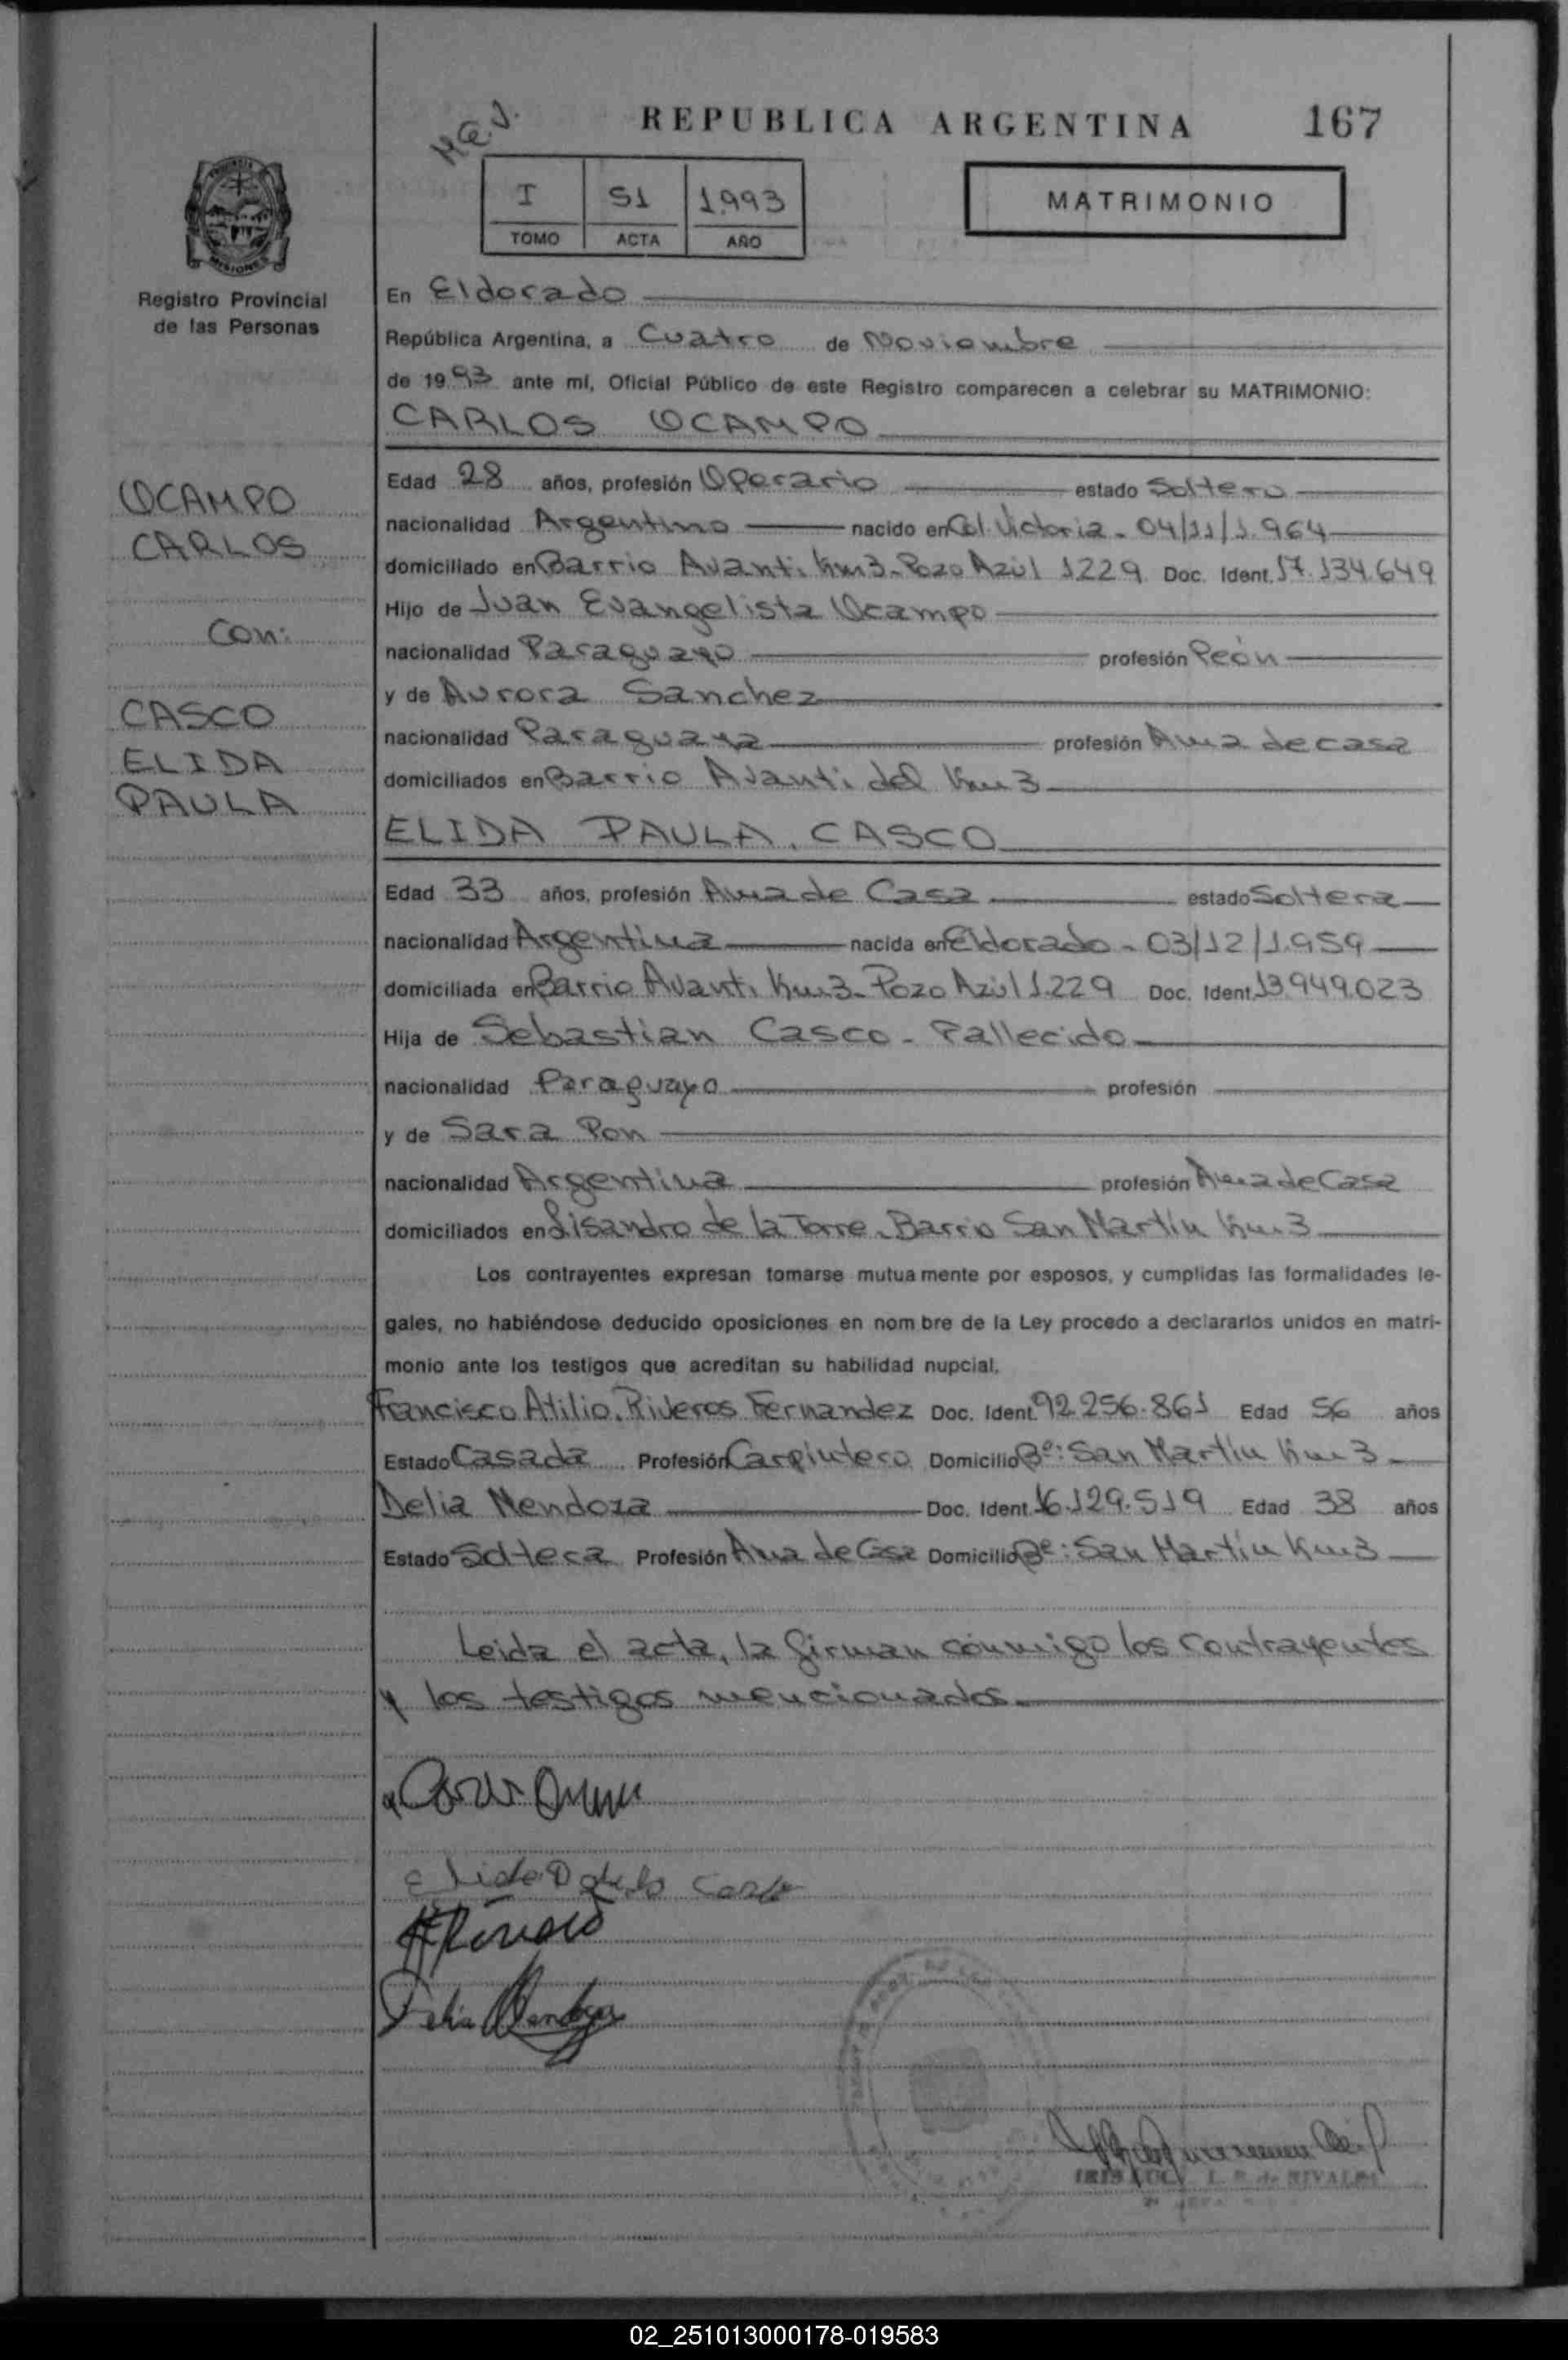 REPUBLICA ARGENTINA 167
H.G.J.
I 51 1993
TOMO ACTA AÑO
MATRIMONIO
MISIONES
Registro Provincial
de las Personas
En Eldorado
República Argentina, a Cuatro de Noviembre
de 1993 ante mí, Oficial Público de este Registro comparecen a celebrar su MATRIMONIO:
CARLOS OCAMPO
OCAMPO
CARLOS
Con:
CASCO
ELIDA
PAULA
Edad 28 años, profesión Operario estado Soltero
nacionalidad Argentino nacido en Col. Victoria - 04/11/1.964
domiciliado en Barrio Avanti Km3- Pozo Azúl 1229 Doc. Ident. 17.134.649
Hijo de Juan Evangelista Ocampo
nacionalidad Paraguayo profesión Peón
y de Aurora Sanchez
nacionalidad Paraguaya profesión Ama de casa
domiciliados en Barrio Avanti del Km 3
ELIDA PAULA, CASCO
Edad 33 años, profesión Ama de Casa estado Soltera
nacionalidad Argentina nacida en Eldorado - 03/12/1.959
domiciliada en Barrio Avanti Km3- Pozo Azúl 1.229 Doc. Ident. 13.949.023
Hija de Sebastian Casco - Fallecido
nacionalidad Paraguayo profesión
y de Sara Pon
nacionalidad Argentina profesión Ama de Casa
domiciliados en Lisandro de la Torre - Barrio San Martín Km 3
Los contrayentes expresan tomarse mutuamente por esposos, y cumplidas las formalidades le-
gales, no habiéndose deducido oposiciones en nombre de la Ley procedo a declararlos unidos en matri-
monio ante los testigos que acreditan su habilidad nupcial.
Francisco Atilio, Riveros Fernandez Doc. Ident. 92.256.861 Edad 56 años
Estado Casada Profesión Carpintero Domicilio Bº: San Martín Km 3
Delia Mendoza Doc. Ident. 16.129.519 Edad 38 años
Estado Soltera Profesión Ama de Casa Domicilio Bº: San Martín Km3
Leida el acta, la firman conmigo los contrayentes
y los testigos mencionados.
Elida Paula Casco
Delia Mendoza
de RIVALDI
02_251013000178-019583